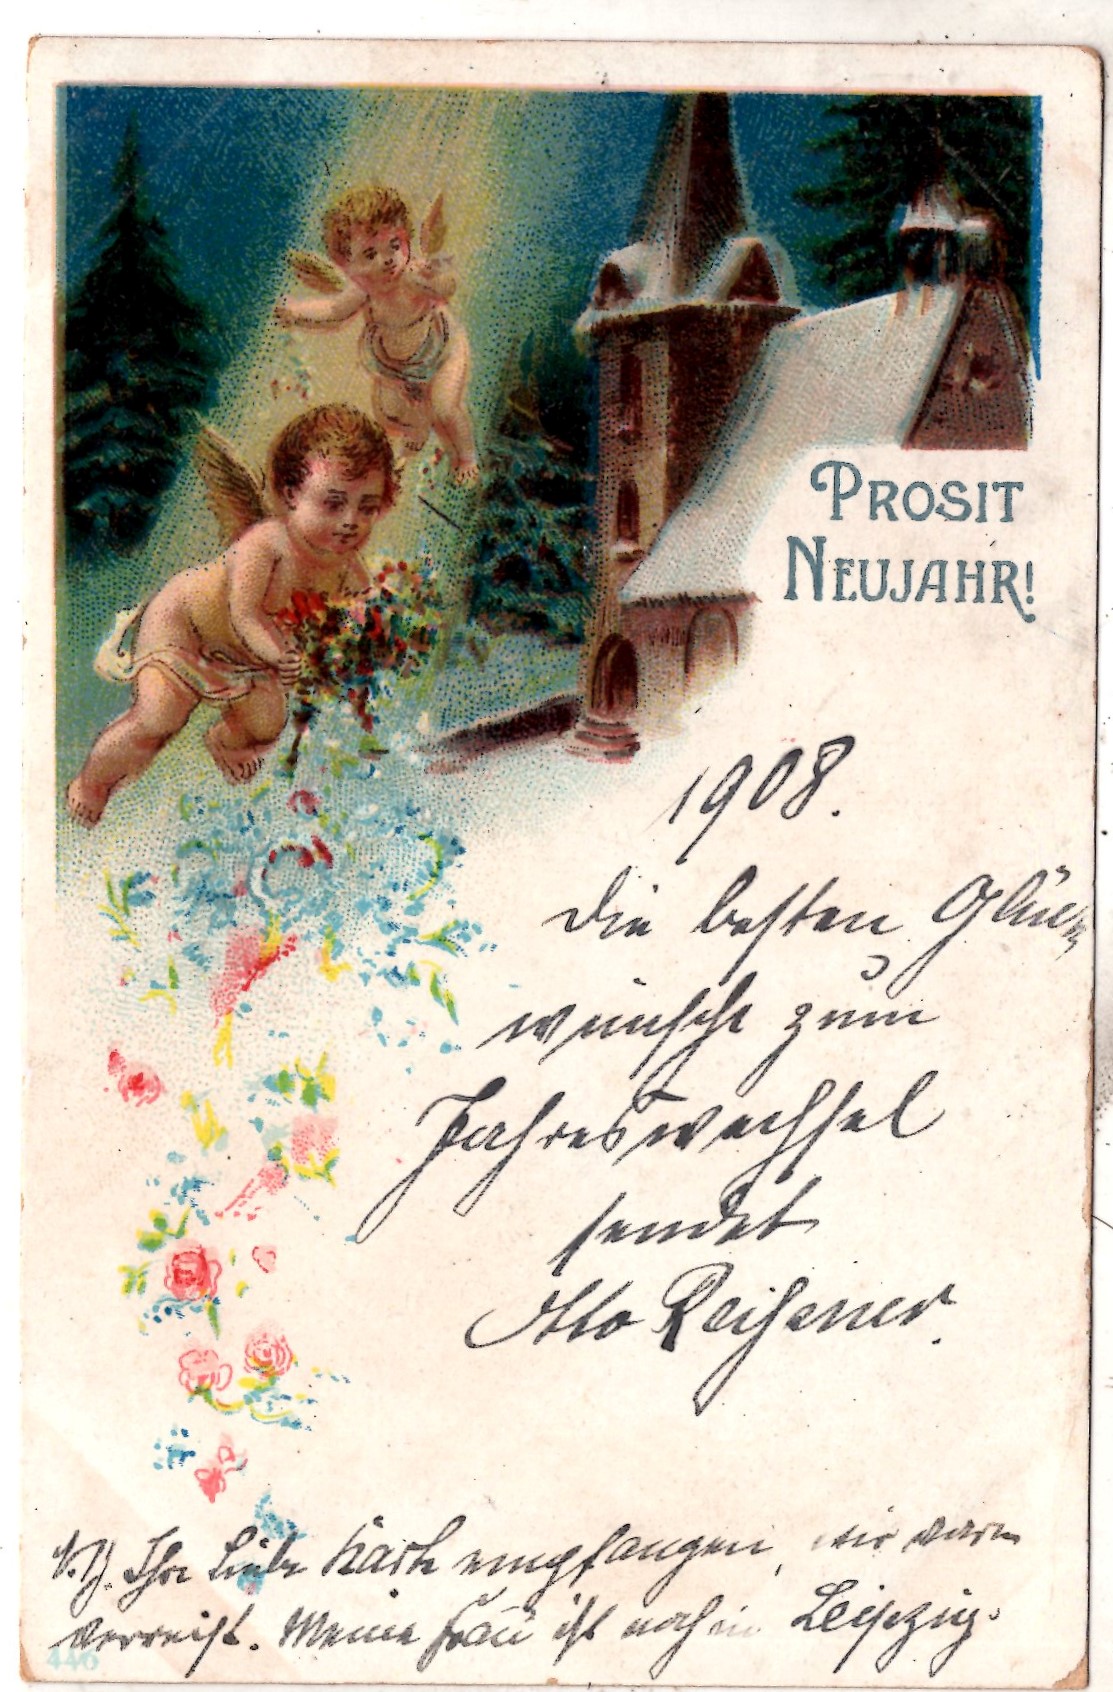 PROSIT
NEUJAHR!
1908.
Die besten Glück-
wünsche zum
Jahreswechsel
sendet
Otto
N.B. Ihre liebe Karte empfangen, wir waren
verreist. Meine Frau ist noch in Leipzig.
446